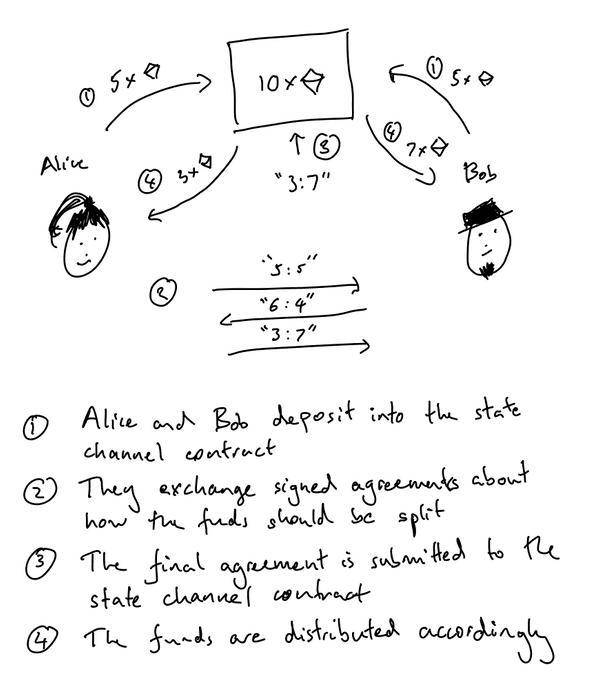 ① 5x
10x
① 5x
Alice
④ 3x
↑ ③
"3:7"
④ 7x
Bob
②
"5:5"
"6:4"
"3:7"
① Alice and Bob deposit into the state
channel contract
② They exchange signed agreements about
how the funds should be split
③ The final agreement is submitted to the
state channel contract
④ The funds are distributed accordingly